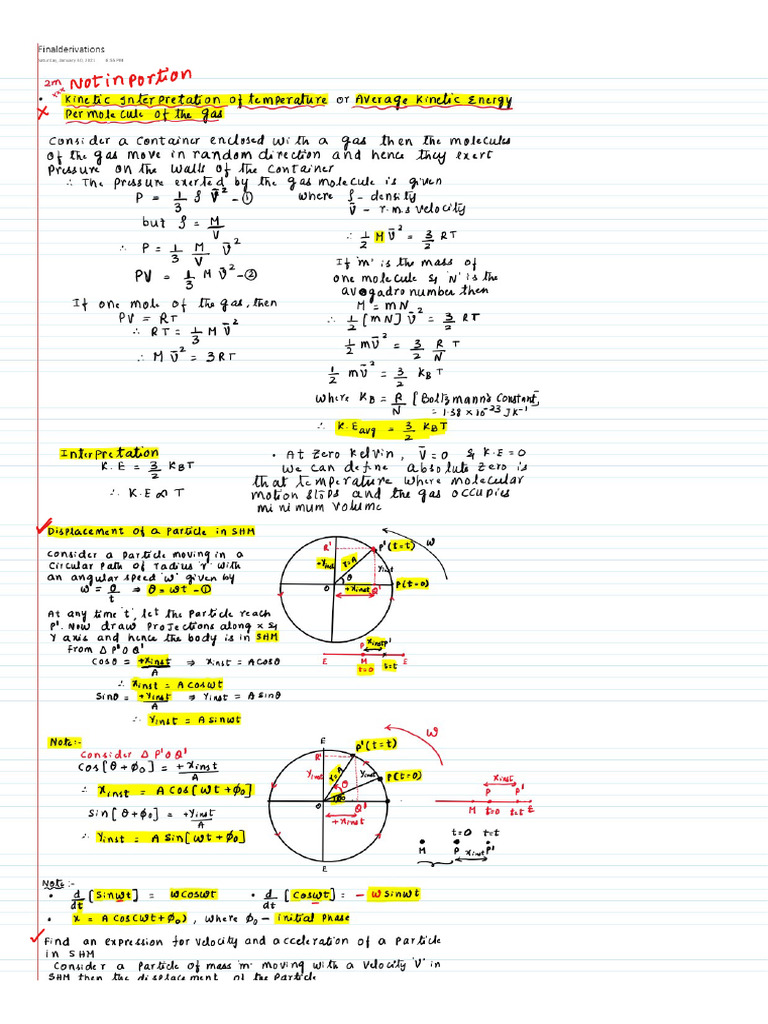 Finalderivations
Saturday, January 30, 2021 8:56 PM
2m Not in portion
• Kinetic Interpretation of temperature or Average Kinetic Energy
x Per molecule of the gas
Consider a container enclosed with a gas then the molecules
of the gas move in random direction and hence they exert
pressure on the walls of the container
∴ The pressure exerted by the gas molecule is given
P = 1/3 ρ v̄² - ①
where ρ - density
v̄ - r.m.s velocity
but ρ = M/V
∴ P = 1/3 M/V v̄²
PV = 1/3 M v̄² - ②
If one mole of the gas, then
PV = RT
∴ RT = 1/3 M v̄²
∴ M v̄² = 3RT
∴ 1/2 M v̄² = 3/2 RT
If 'm' is the mass of
one molecule & 'N' is the
avogadro number then
M = mN
∴ 1/2 [mN] v̄² = 3/2 RT
1/2 m v̄² = 3/2 R/N T
1/2 m v̄² = 3/2 K_B T
where K_B = R/N [Boltzmann's Constant,
= 1.38 x 10⁻²³ J K⁻¹
∴ K.E_avg = 3/2 K_B T
Interpretation
K.E = 3/2 K_B T
∴ K.E ∝ T
• At zero Kelvin, v̄ = 0 & K.E = 0
we can define absolute zero is
that temperature where molecular
motion stops and the gas occupies
minimum volume
✓ Displacement of a Particle in SHM
Consider a particle moving in a
circular path of radius 'r' with
an angular speed 'w' given by
w = θ/t ⇒ θ = wt - ①
At any time 't', let the particle reach
P'. Now draw projections along x &
Y axis and hence the body is in SHM
from Δ P'OQ'
Cosθ = +x_inst/A ⇒ x_inst = A cosθ
∴ x_inst = A coswt
Sinθ = +y_inst/A ⇒ y_inst = A sinθ
∴ y_inst = A sinwt
R' P' (t=t) w
-y_inst r=A y_inst
θ
O +x_inst Q' P(t=0)
P x_inst P'
E M t=t E
t=0
Note:-
Consider Δ P'OQ'
Cos[θ+ϕ₀] = +x_inst/A
∴ x_inst = A cos[wt+ϕ₀]
Sin[θ+ϕ₀] = +y_inst/A
∴ y_inst = A sin[wt+ϕ₀]
E
R' P' (t=t) w
y_inst r=A y_inst P(t=0)
θ
ϕ₀
O Q'
+x_inst
E
x_inst
P P'
M t=0 t=t E
t=0 t=t
M P x_inst P'
Note:-
• d/dt [sinwt] = wcoswt • d/dt [coswt] = -wsinwt
• x = A cos(wt+ϕ₀), where ϕ₀ - initial phase
✓ Find an expression for velocity and acceleration of a particle
in SHM
Consider a particle of mass 'm' moving with a velocity 'v' in
SHM then the displacement of the particle